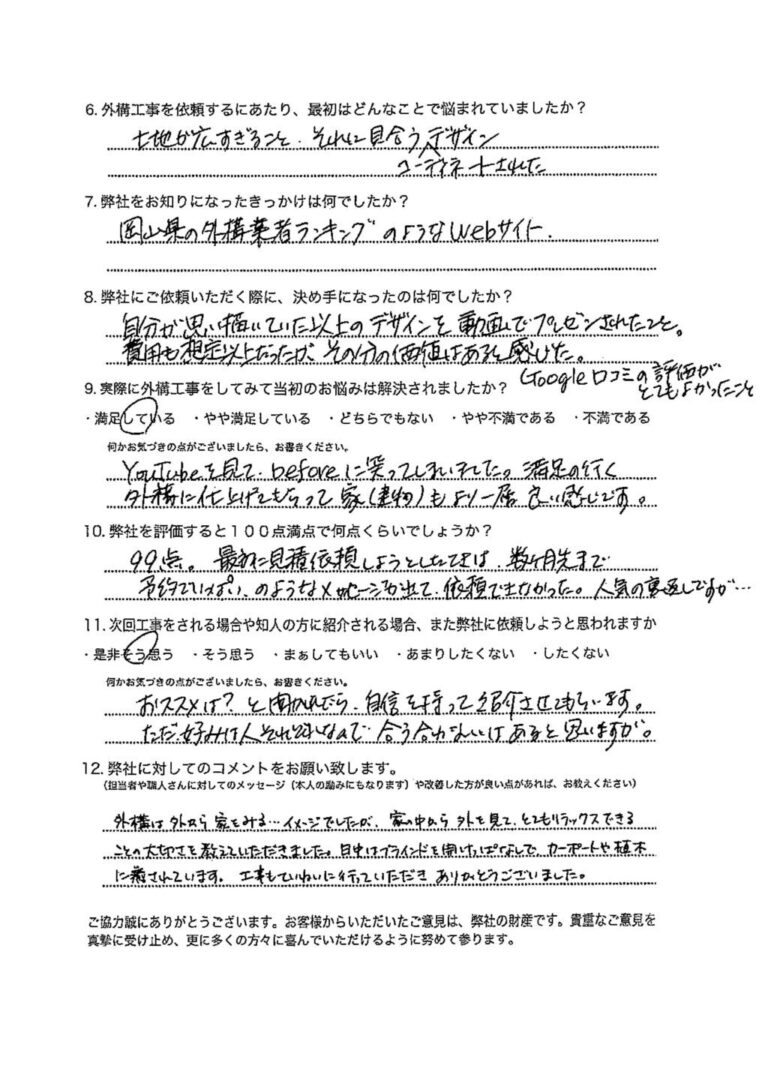 6. 外構工事を依頼するにあたり、最初はどんなことで悩まれていましたか？
土地が広すぎること．それに見合うデザイン
コーディネートされた
7. 弊社をお知りになったきっかけは何でしたか？
岡山県の外構業者ランキングのようなWebサイト．
8. 弊社にご依頼いただく際に、決め手になったのは何でしたか？
自分が思い描いていた以上のデザインを動画でプレゼンされたこと。
費用も想定以上だったが、その分の価値はあると感じた。
Google口コミの評価が
とてもよかったこと
9. 実際に外構工事をしてみて当初のお悩みは解決されましたか？
・満足している ・やや満足している ・どちらでもない ・やや不満である ・不満である
何かお気づきの点がございましたら、お書きください。
YouTubeを見て、beforeに笑ってしまいました。満足の行く
外構に仕上げてもらって家(建物)もより一層良い感じです。
10. 弊社を評価すると１００点満点で何点くらいでしょうか？
99点。最初に見積依頼しようとしたときは、数ヶ月先まで
予約でいっぱい、のようなメッセージが出て、依頼できなかった。人気の裏返しですが…
11. 次回工事をされる場合や知人の方に紹介される場合、また弊社に依頼しようと思われますか
・是非そう思う ・そう思う ・まぁしてもいい ・あまりしたくない ・したくない
何かお気づきの点がございましたら、お書きください。
おススメは？と聞かれたら、自信を持って紹介させてもらいます。
ただ、好みは人それぞれなので、合う合わないはあると思いますが。
12. 弊社に対してのコメントをお願い致します。
（担当者や職人さんに対してのメッセージ（本人の励みにもなります）や改善した方が良い点があれば、お教えください）
外構は外から家をみる…イメージでしたが、家の中から外を見て、とてもリラックスできる
ことの大切さを教えていただきました。日中はブラインドを開けっぱなしで、カーポートや植木
に癒されています。工事もていねいに行っていただきありがとうございました。
ご協力誠にありがとうございます。お客様からいただいたご意見は、弊社の財産です。貴重なご意見を
真摯に受け止め、更に多くの方々に喜んでいただけるように努めて参ります。